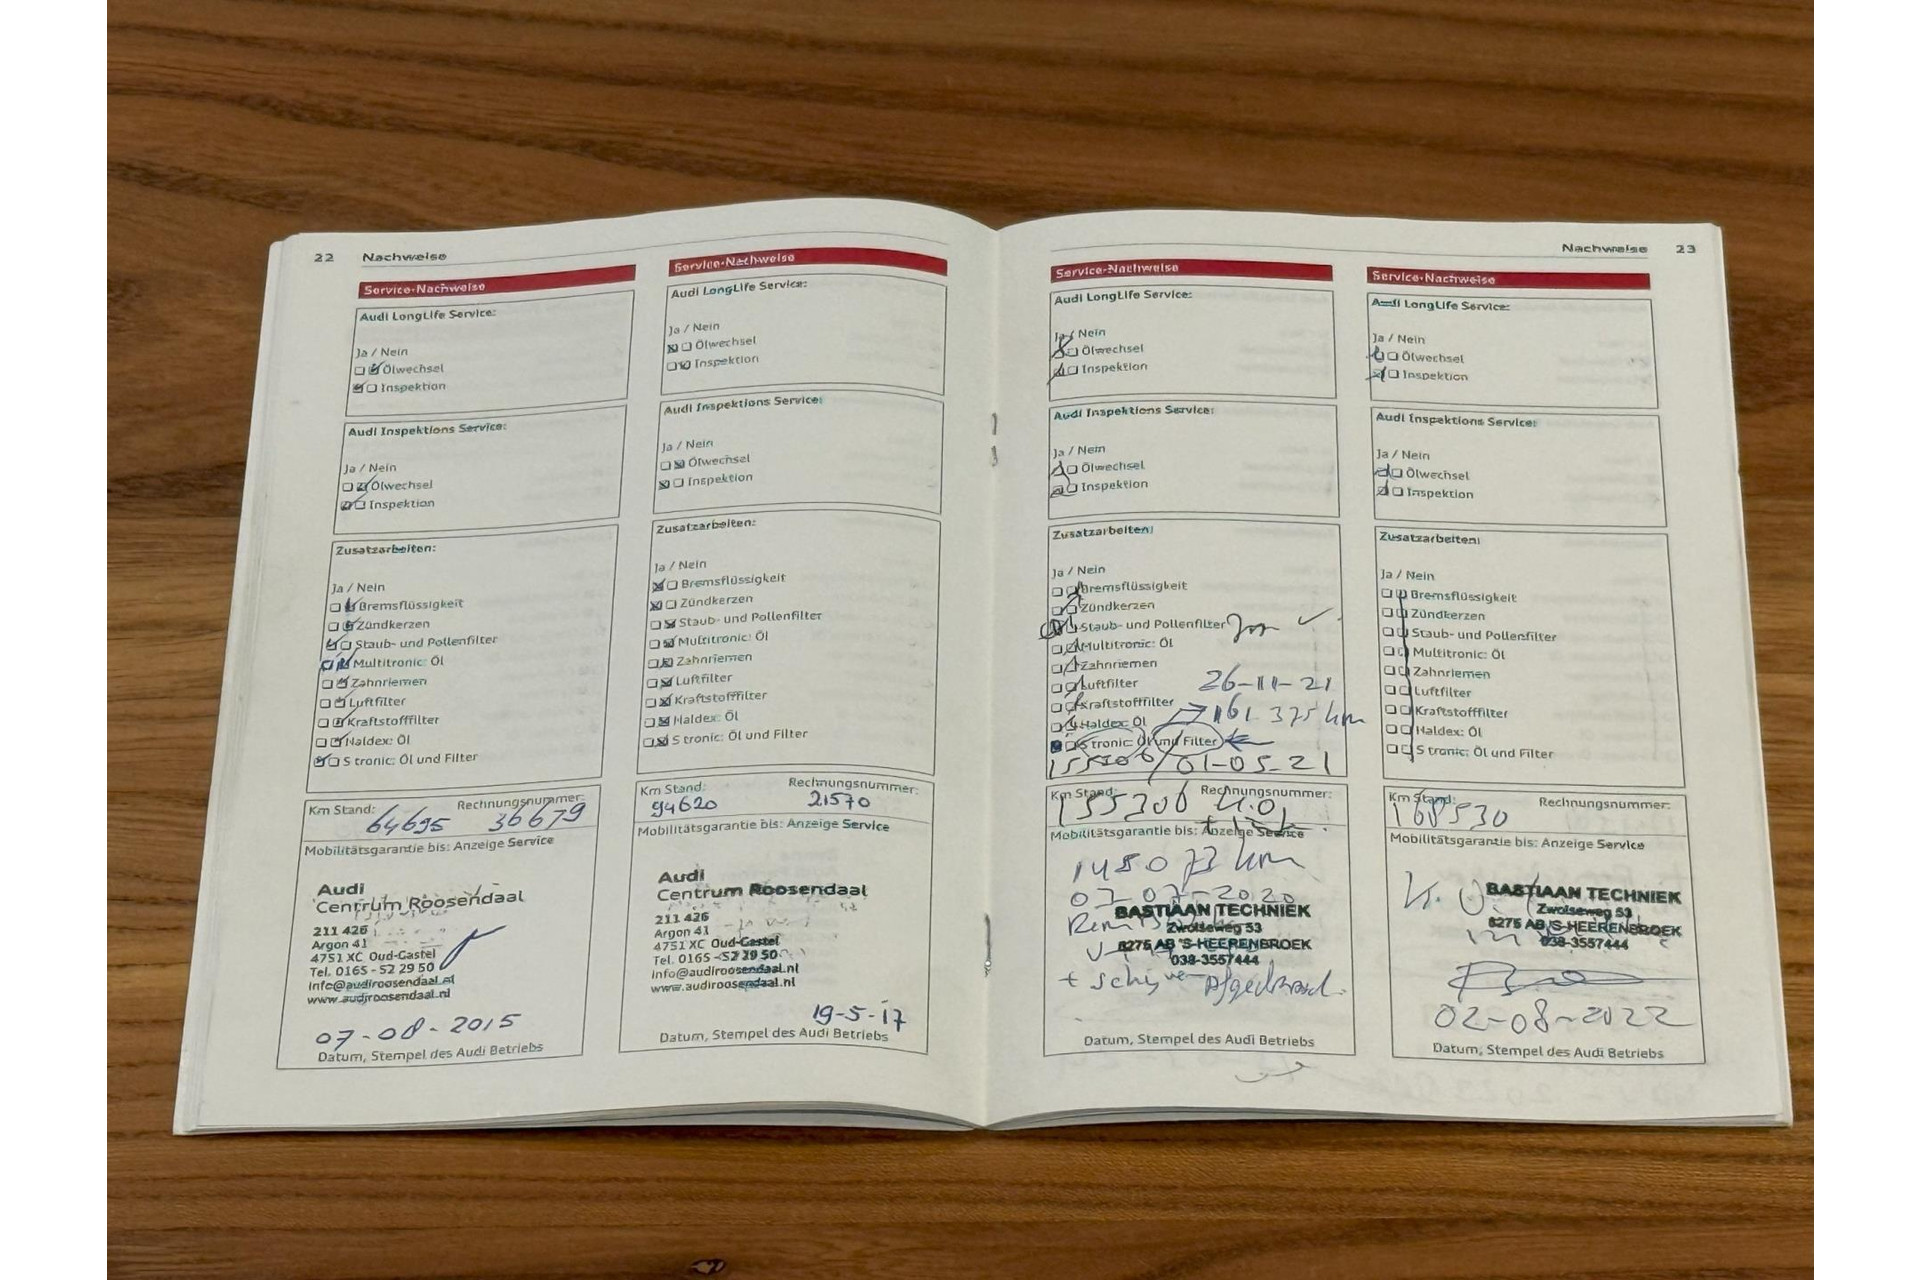 22 Nachweise
Service-Nachweise
Audi LongLife Service:
Ja / Nein
Ölwechsel
Inspektion
Audi Inspektions Service:
Ja / Nein
Ölwechsel
Inspektion
Zusatzarbeiten:
Ja / Nein
Bremsflüssigkeit
Zündkerzen
Staub- und Pollenfilter
Multitronic: Öl
Zahnriemen
Luftfilter
Kraftstofffilter
Haldex: Öl
S tronic: Öl und Filter
Km Stand: Rechnungsnummer:
64695 36679
Mobilitätsgarantie bis: Anzeige Service
Audi
Centrum Roosendaal
211 426
Argon 41
4751 XC Oud-Gastel
Tel. 0165 - 52 29 50
info@audiroosendaal.nl
www.audiroosendaal.nl
07-08-2015
Datum, Stempel des Audi Betriebs
Service-Nachweise
Audi LongLife Service:
Ja / Nein
Ölwechsel
Inspektion
Audi Inspektions Service:
Ja / Nein
Ölwechsel
Inspektion
Zusatzarbeiten:
Ja / Nein
Bremsflüssigkeit
Zündkerzen
Staub- und Pollenfilter
Multitronic: Öl
Zahnriemen
Luftfilter
Kraftstofffilter
Haldex: Öl
S tronic: Öl und Filter
Km Stand: Rechnungsnummer:
94620 21570
Mobilitätsgarantie bis: Anzeige Service
Audi
Centrum Roosendaal
211 426
Argon 41
4751 XC Oud-Gastel
Tel. 0165 - 52 29 50
info@audiroosendaal.nl
www.audiroosendaal.nl
19-5-17
Datum, Stempel des Audi Betriebs
Nachweise 23
Service-Nachweise
Audi LongLife Service:
Ja / Nein
Ölwechsel
Inspektion
Audi Inspektions Service:
Ja / Nein
Ölwechsel
Inspektion
Zusatzarbeiten:
Ja / Nein
Bremsflüssigkeit
Zündkerzen
Staub- und Pollenfilter
Multitronic: Öl
Zahnriemen
Luftfilter 26-11-21
Kraftstofffilter 161.375 km
Haldex: Öl
S tronic: Öl und Filter
01-05-21
Km Stand: Rechnungsnummer:
155306
Mobilitätsgarantie bis: Anzeige Service
148073 km
07-07-2020
BASTIAAN TECHNIEK
Zwolseweg 53
8275 AB 'S-HEERENBROEK
038-3557444
+ schijven afgedraaid.
Datum, Stempel des Audi Betriebs
Service-Nachweise
Audi LongLife Service:
Ja / Nein
Ölwechsel
Inspektion
Audi Inspektions Service:
Ja / Nein
Ölwechsel
Inspektion
Zusatzarbeiten:
Ja / Nein
Bremsflüssigkeit
Zündkerzen
Staub- und Pollenfilter
Multitronic: Öl
Zahnriemen
Luftfilter
Kraftstofffilter
Haldex: Öl
S tronic: Öl und Filter
Km Stand: Rechnungsnummer:
168530
Mobilitätsgarantie bis: Anzeige Service
BASTIAAN TECHNIEK
Zwolseweg 53
8275 AB 'S-HEERENBROEK
038-3557444
02-08-2022
Datum, Stempel des Audi Betriebs